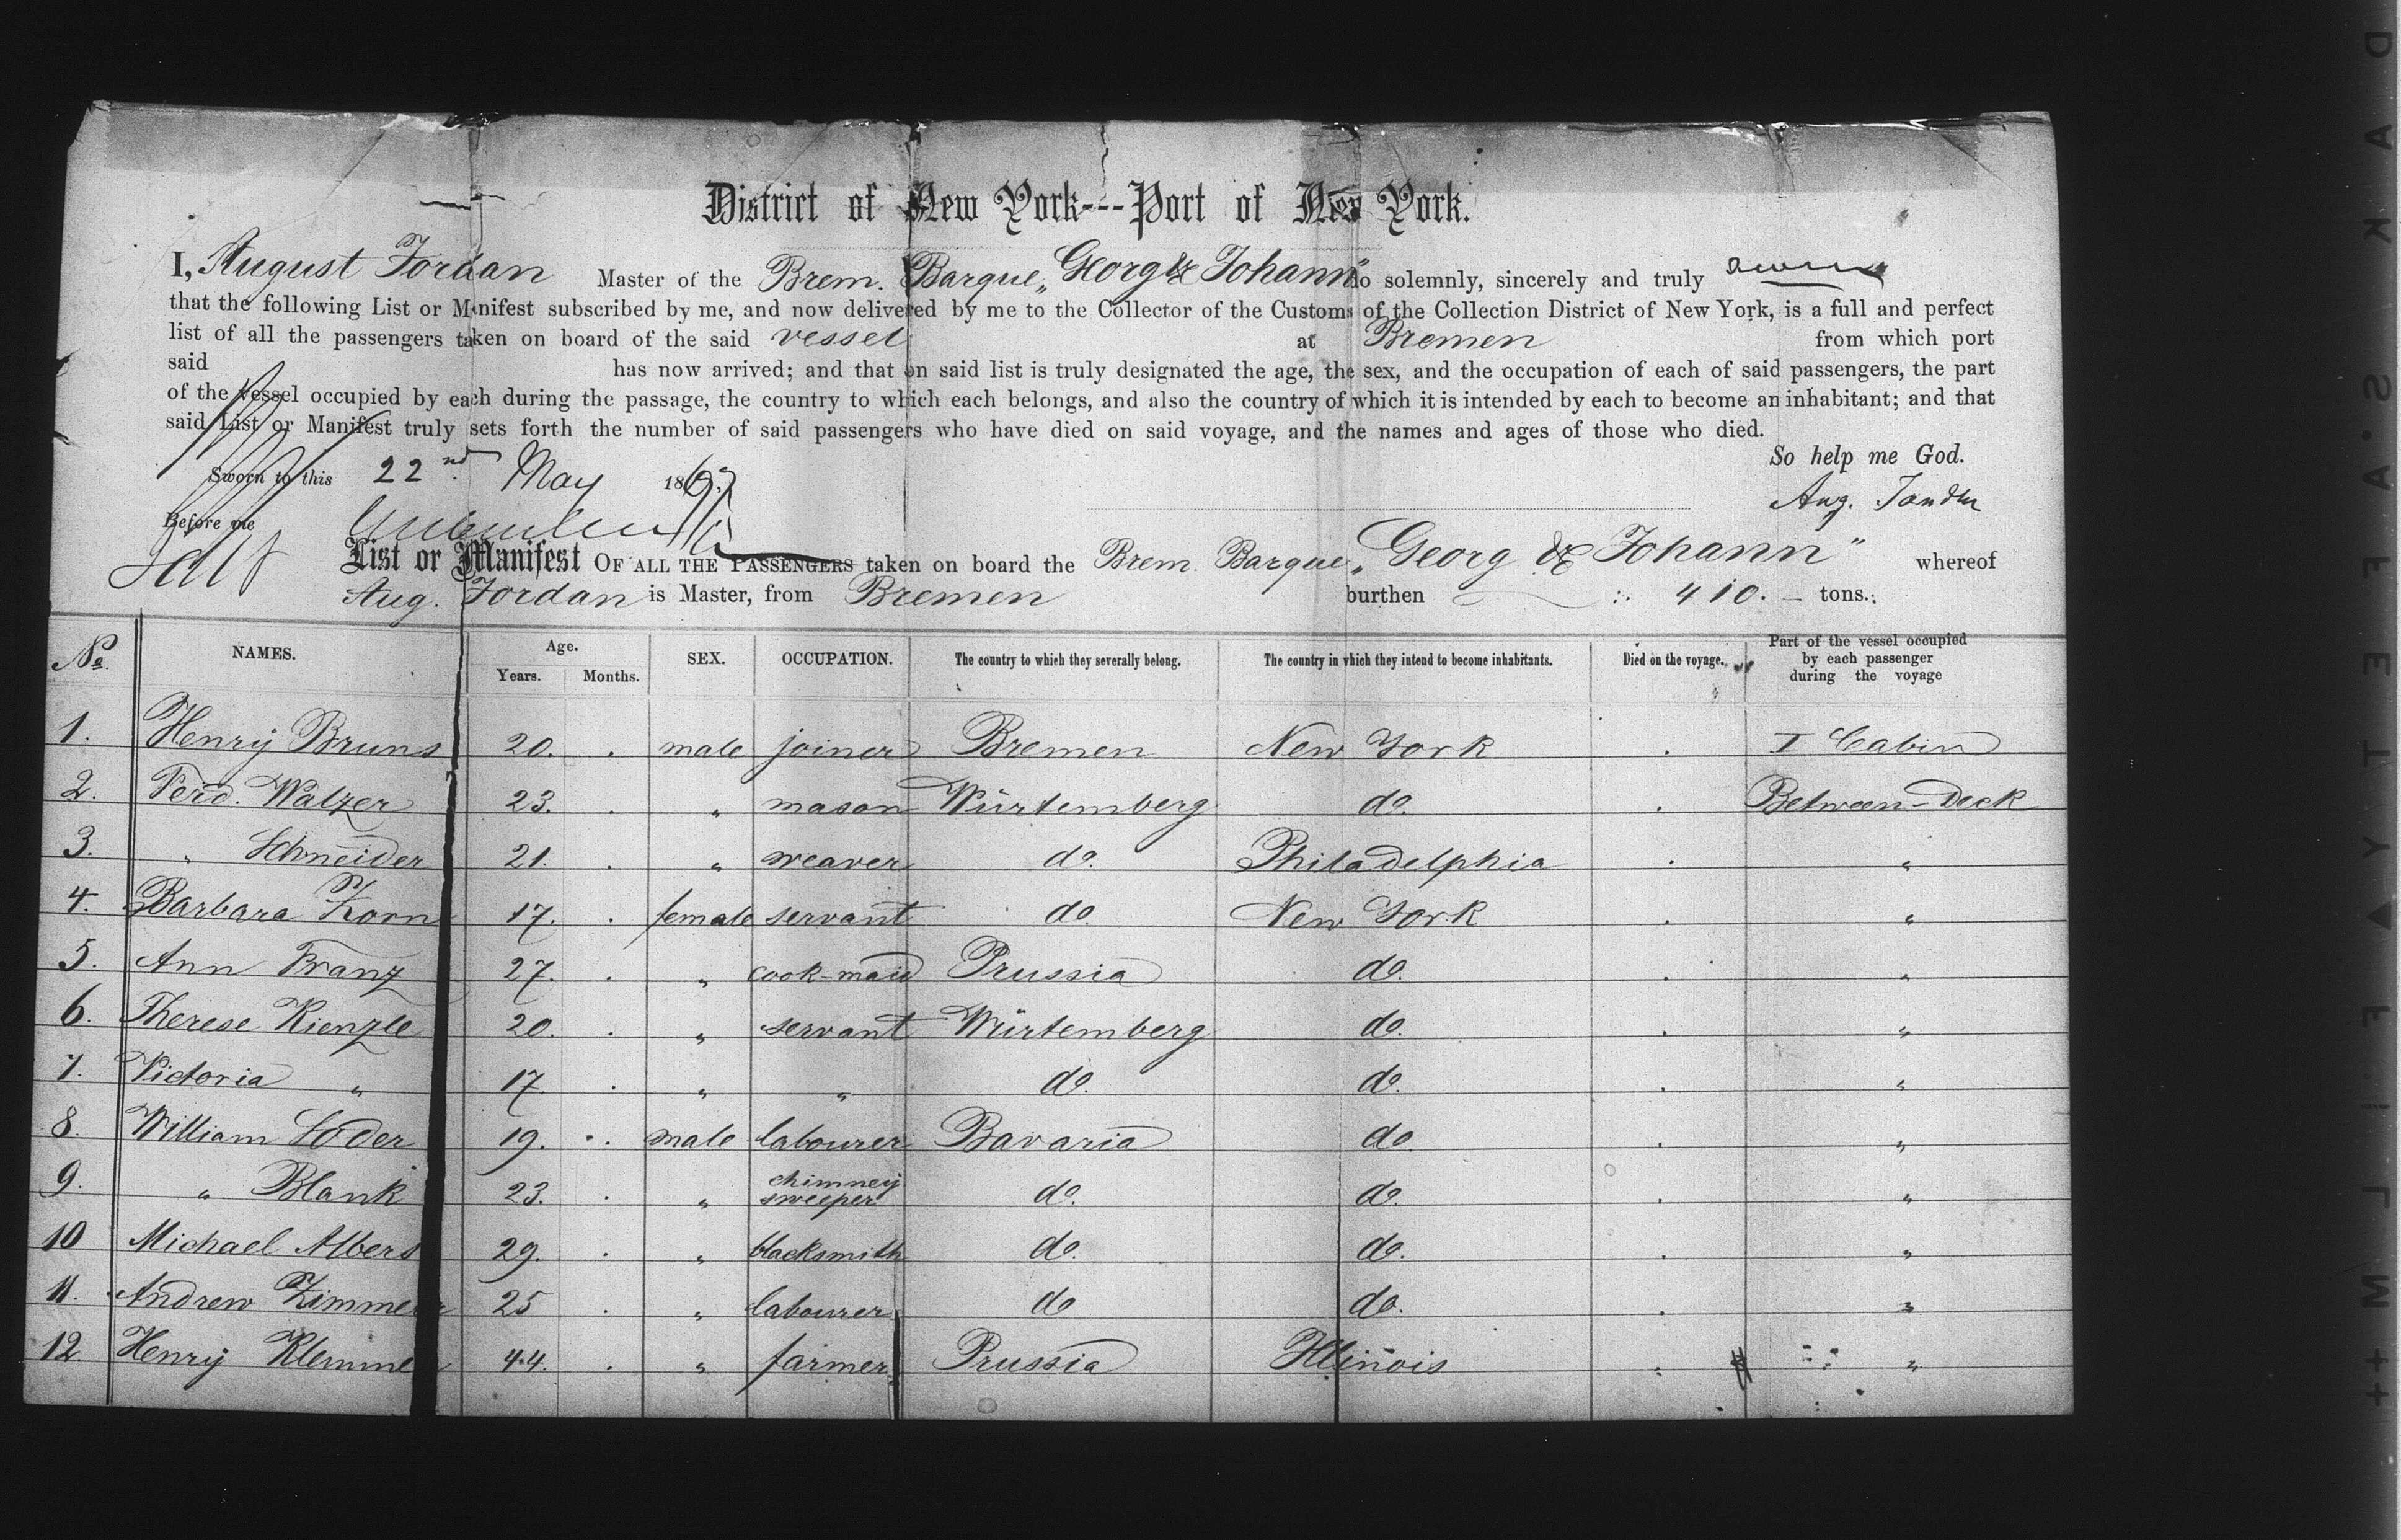 District of New York---Port of New York.
I, August Jordan Master of the Brem. Barque „Georg & Johann" do solemnly, sincerely and truly swear
that the following List or Manifest subscribed by me, and now delivered by me to the Collector of the Customs of the Collection District of New York, is a full and perfect
list of all the passengers taken on board of the said vessel at Bremen from which port
said has now arrived; and that on said list is truly designated the age, the sex, and the occupation of each of said passengers, the part
of the vessel occupied by each during the passage, the country to which each belongs, and also the country of which it is intended by each to become an inhabitant; and that
said List or Manifest truly sets forth the number of said passengers who have died on said voyage, and the names and ages of those who died.
So help me God.
Sworn to this 22nd May 186
Aug.
Before me
List or Manifest OF ALL THE PASSENGERS taken on board the Brem. Barque „Georg & Johann" whereof
Aug. Jordan is Master, from Bremen burthen 410. tons.
No. NAMES. Age. Years. Months. SEX. OCCUPATION. The country to which they severally belong. The country in which they intend to become inhabitants. Died on the voyage. Part of the vessel occupied by each passenger during the voyage
1. Henry Bruns 20. . male joiner Bremen New York . I Cabin
2. Ferd. Walzer 23. . " mason Würtemberg do. . Between-Deck
3. " Schneider 21. . " weaver do. Philadelphia . "
4. Barbara Korn 17. . female servant do New York . "
5. Ann Franz 27. . " cook-maid Prussia do. . "
6. Therese Kienzle 20. . " servant Würtemberg do. . "
7. Victoria " 17. . " " do. do. . "
8. William Soder 19. . male labourer Bavaria do . "
9. " Blank 23. . " chimney sweeper do. do. . "
10 Michael Albers 29. . " blacksmith do. do. . "
11. Andrew Zimmer 25 . " labourer do do. . "
12. Henry Klemme 44. . " farmer Prussia Illinois . "
DAK·S·AFETY▲FILM++